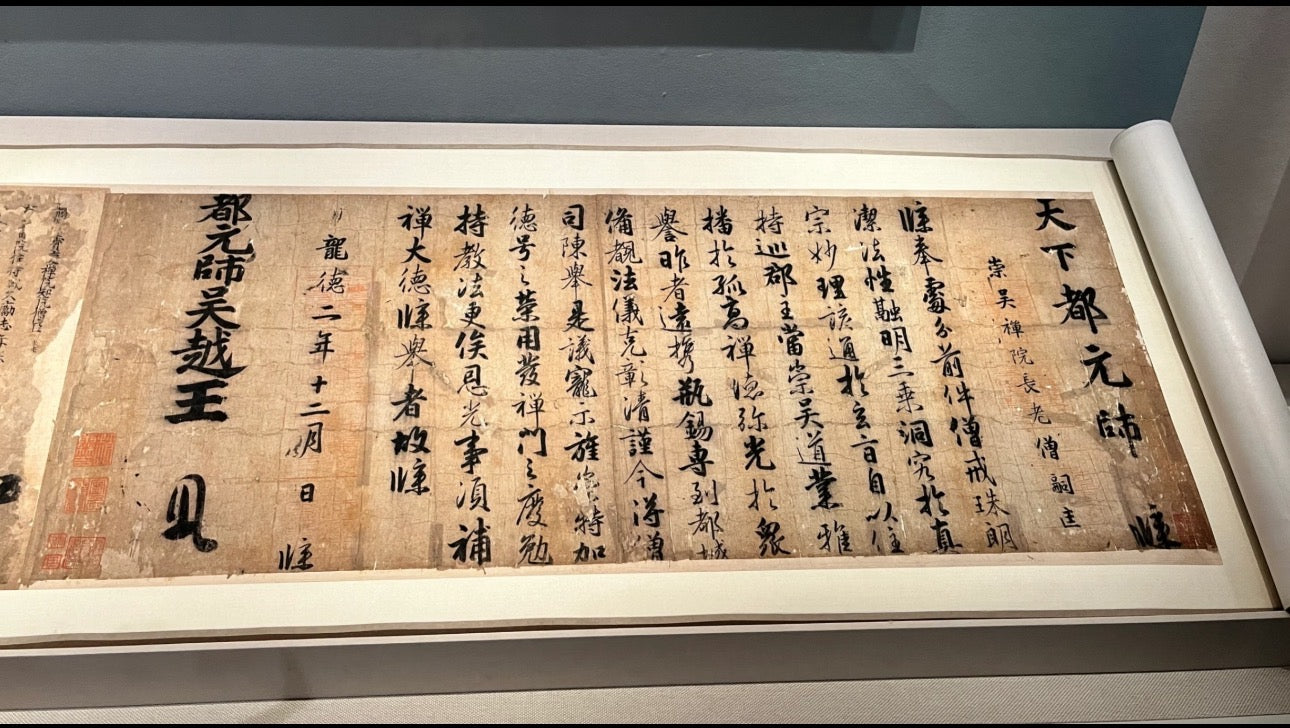 天下都元帥 牒
崇吴禪院長老僧嗣匡
牒奉處分前件僧戒珠朗
潔法性融明三乘洞究於真
宗妙理該通於玄旨自以住
持巡郡王當崇吴道業雅
播於孤高禪德弥光於衆
譽昨者遠攜瓶錫專到都城
備覩法儀克彰清謹今得僧
司陳舉是議寵示旌崇特加
德号之榮用發禪門之慶勉
持教法更俟恩光事須補
禪大德牒舉者故牒
龍德二年十二月 日 牒
都元帥吴越王